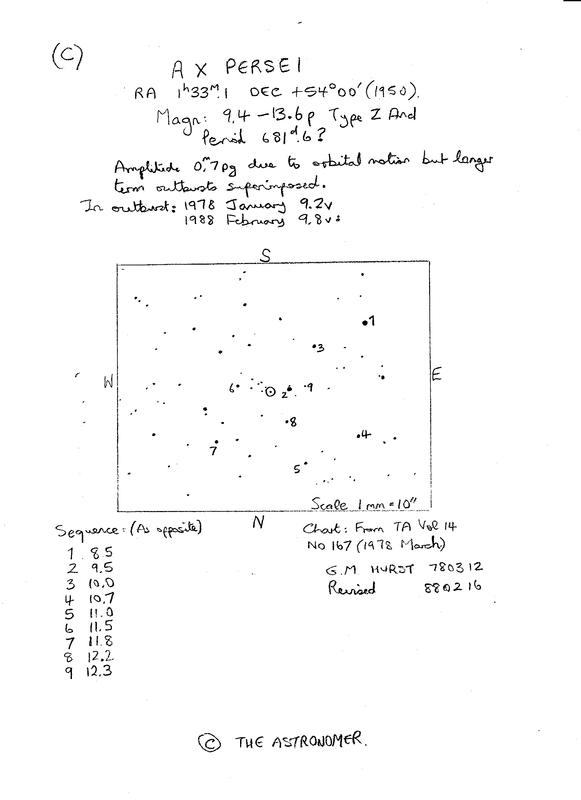 (C)
AX PERSEI
RA 1ʰ33ᵐ.1 DEC +54°00' (1950).
Magn: 9.4 – 13.6p Type Z And
Period 681ᵈ.6?
Amplitude 0.ᵐ7pg due to orbital motion but longer
term outbursts superimposed.
In outburst: 1978 January 9.2v
1988 February 9.8v:
S
1
3
W
E
6
2
9
8
4
7
5
Scale 1mm = 10"
N
Sequence: (As opposite)
1 8.5
2 9.5
3 10.0
4 10.7
5 11.0
6 11.5
7 11.8
8 12.2
9 12.3
Chart: From TA Vol 14
No 167 (1978 March)
G.M HURST 780312
Revised 880216
© THE ASTRONOMER.